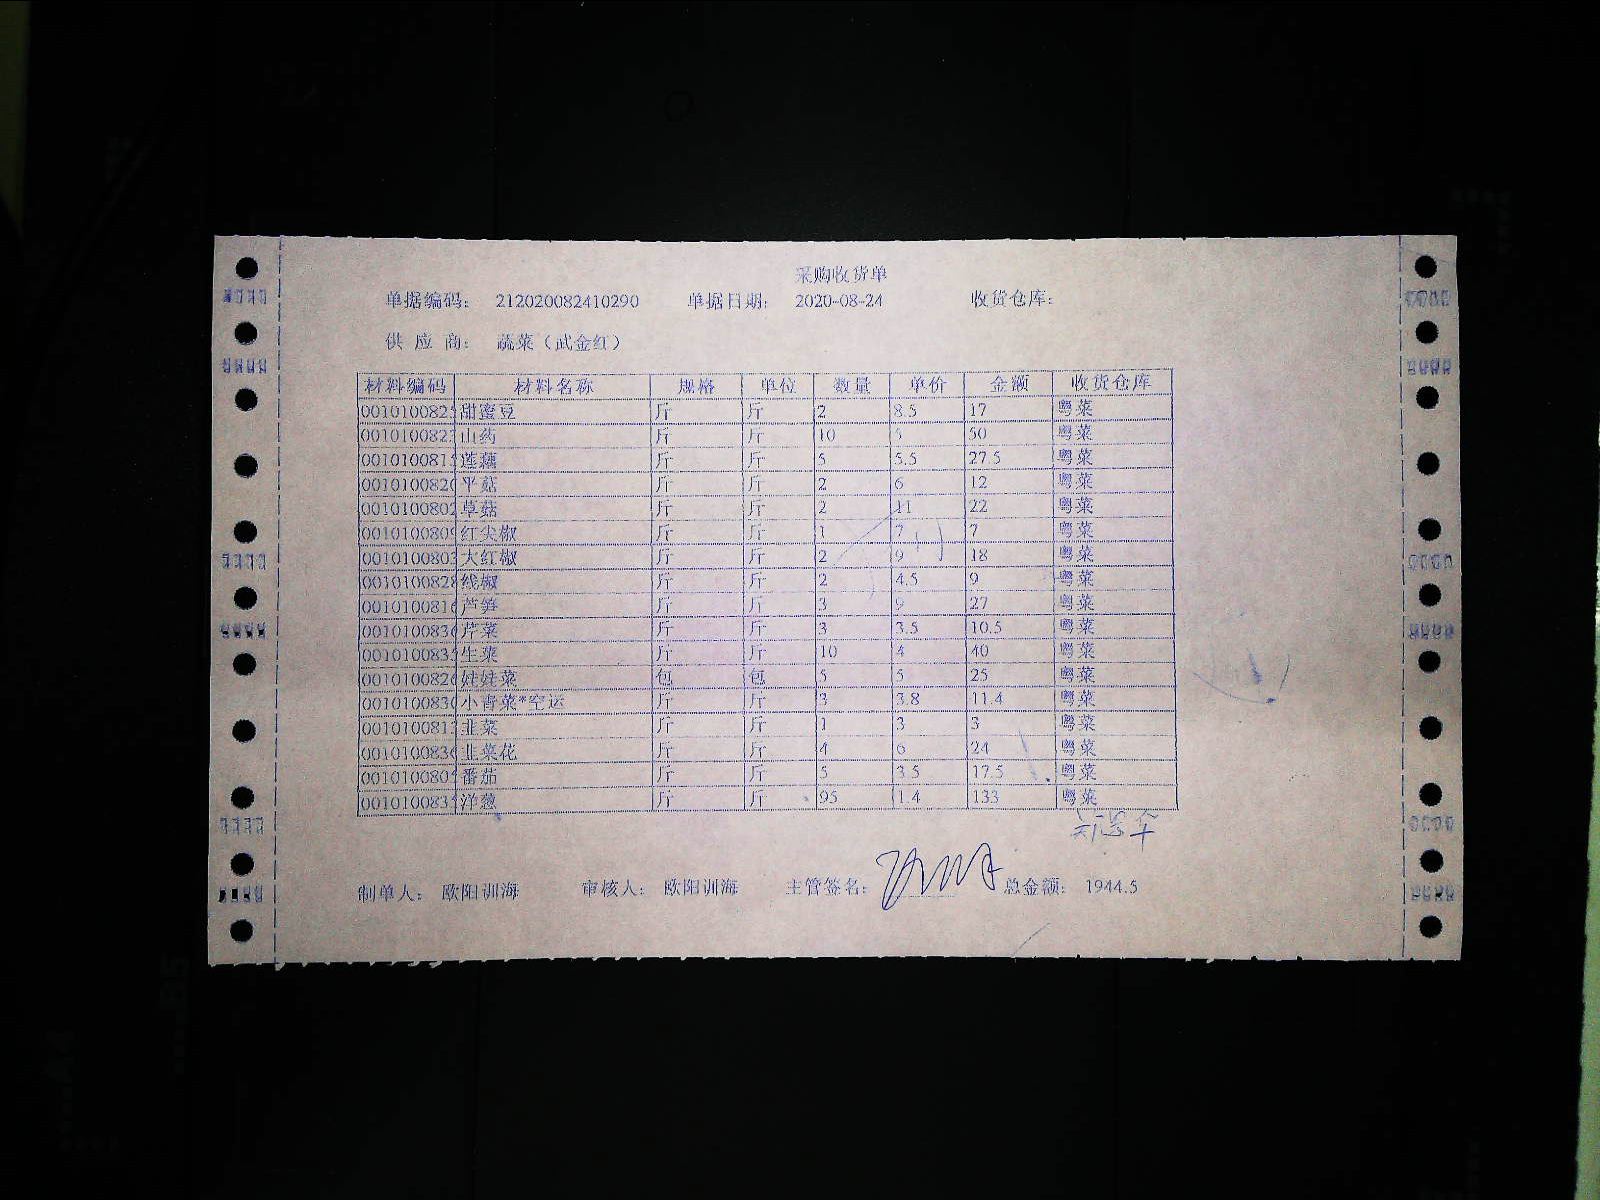 采购收货单
单据编码： 212020082410290 单据日期： 2020-08-24 收货仓库：
供 应 商： 蔬菜（武金红）
材料编码 材料名称 规格 单位 数量 单价 金额 收货仓库
001010082 甜蜜豆 斤 斤 2 8.5 17 粤菜
001010082 山药 斤 斤 10 5 50 粤菜
001010081 莲藕 斤 斤 5 5.5 27.5 粤菜
001010082 平菇 斤 斤 2 6 12 粤菜
001010080 草菇 斤 斤 2 11 22 粤菜
001010080 红尖椒 斤 斤 1 7 7 粤菜
001010080 大红椒 斤 斤 2 9 18 粤菜
001010082 线椒 斤 斤 2 4.5 9 粤菜
001010081 芦笋 斤 斤 3 9 27 粤菜
001010083 芹菜 斤 斤 3 3.5 10.5 粤菜
001010083 生菜 斤 斤 10 4 40 粤菜
001010082 娃娃菜 包 包 5 5 25 粤菜
001010083 小青菜*空运 斤 斤 3 3.8 11.4 粤菜
001010081 韭菜 斤 斤 1 3 3 粤菜
001010083 韭菜花 斤 斤 4 6 24 粤菜
001010080 番茄 斤 斤 5 3.5 17.5 粤菜
001010083 洋葱 斤 斤 95 1.4 133 粤菜
制单人： 欧阳训海 审核人： 欧阳训海 主管签名： 总金额： 1944.5